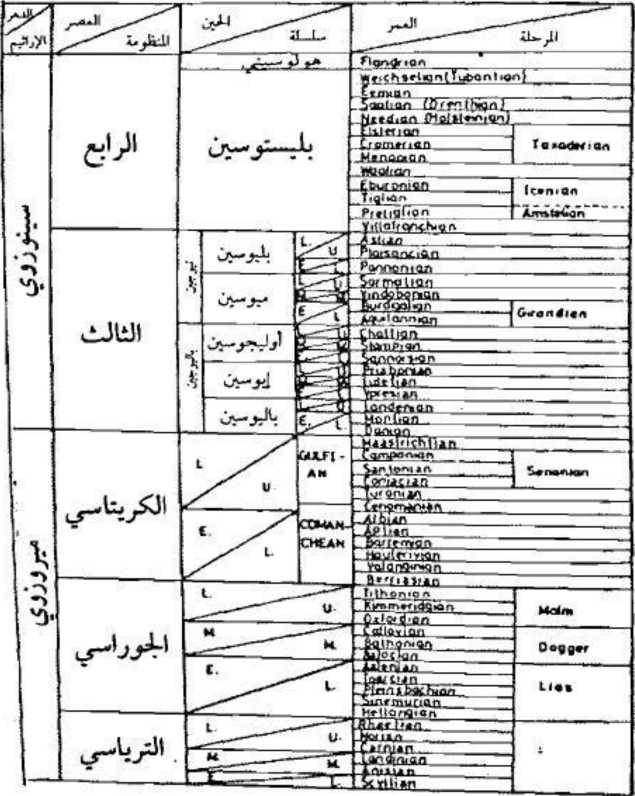 الدهر العصر الحين العمر
الإراثيم المنظومة سلسلة المرحلة
سينوزوي
الرابع
هولوسيني
Flandrian
بليستوسين
Weichselian (Tubantian)
Eemian
Saalian (Drenthian)
Needian (Holsteinian)
Elsterian
Cromerian
Menapian
Taxaderian
Waalian
Eburonian
Tiglian
Icenian
Pretiglian
Amstelian
Villafranchian
الثالث
نيوجين
بليوسين
L. U.
E. L.
Astian
Plaisancian
Pannonian
ميوسين
L. U.
M. M.
E. L.
Sarmatian
Vindobonian
Burdigalian
Aquitannian
Girondien
باليوجين
أوليجوسين
Chattian
Stampian
Sannoisian
إيوسين
Priabonian
Lutetian
Ypresian
باليوسين
E. L.
Landenian
Montian
Danian
ميزوزوي
الكريتاسي
L. U.
GULFI-
AN
Maastrichtian
Campanian
Santonian
Coniacian
Senonian
Turonian
Cenomanian
E. L.
COMAN-
CHEAN
Albian
Aptian
Barremian
Hauterivian
Valanginian
Berriasian
الجوراسي
L. U.
Tithonian
Kimmeridgian
Oxfordian
Malm
M. M.
Callovian
Bathonian
Bajocian
Dogger
E. L.
Aalenian
Toarcian
Pleinsbachian
Sinemurian
Hettangian
Lias
الترياسي
L. U.
Rhaetian
Norian
Carnian
M. M.
Landinian
Anisian
E. L.
Scytlian